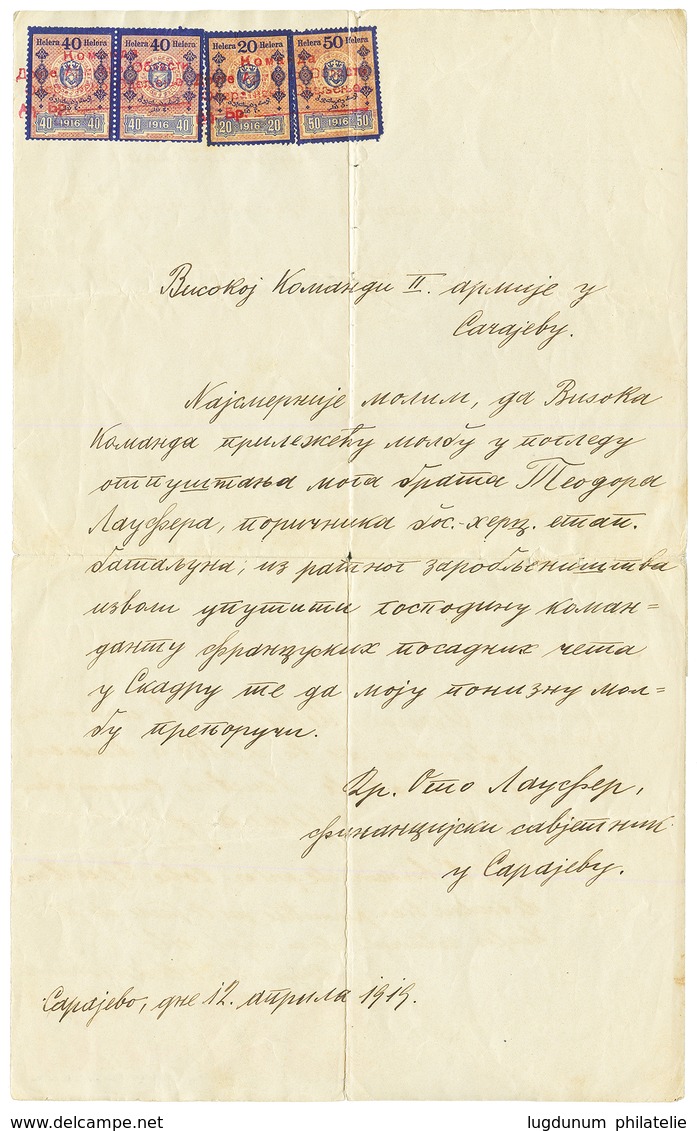 Helera 40 Helera Helera 40 Helera Helera 20 Helera Helera 50
40 1916 40 40 1916 40 20 1916 20 50 1916 50
Високој Команди II. армије у
Сарајеву.
Најсмерније молим, да Висока
Команда прилежећу молбу у погледу
отпуштања мога брата Теодора
Лауфера, поричника бос.-херц. етап.
батаљуна, из ратног заробљеништва
изволи упутити господину коман=
данту француских посадних чета
у Скадру те да моју понизну мол=
бу препоручи.
Др. Ото Лауфер,
финанцијски савјетник
у Сарајеву.
Сарајево, дне 12. априла 1919.
www.delcampe.net lugdunum philatelie